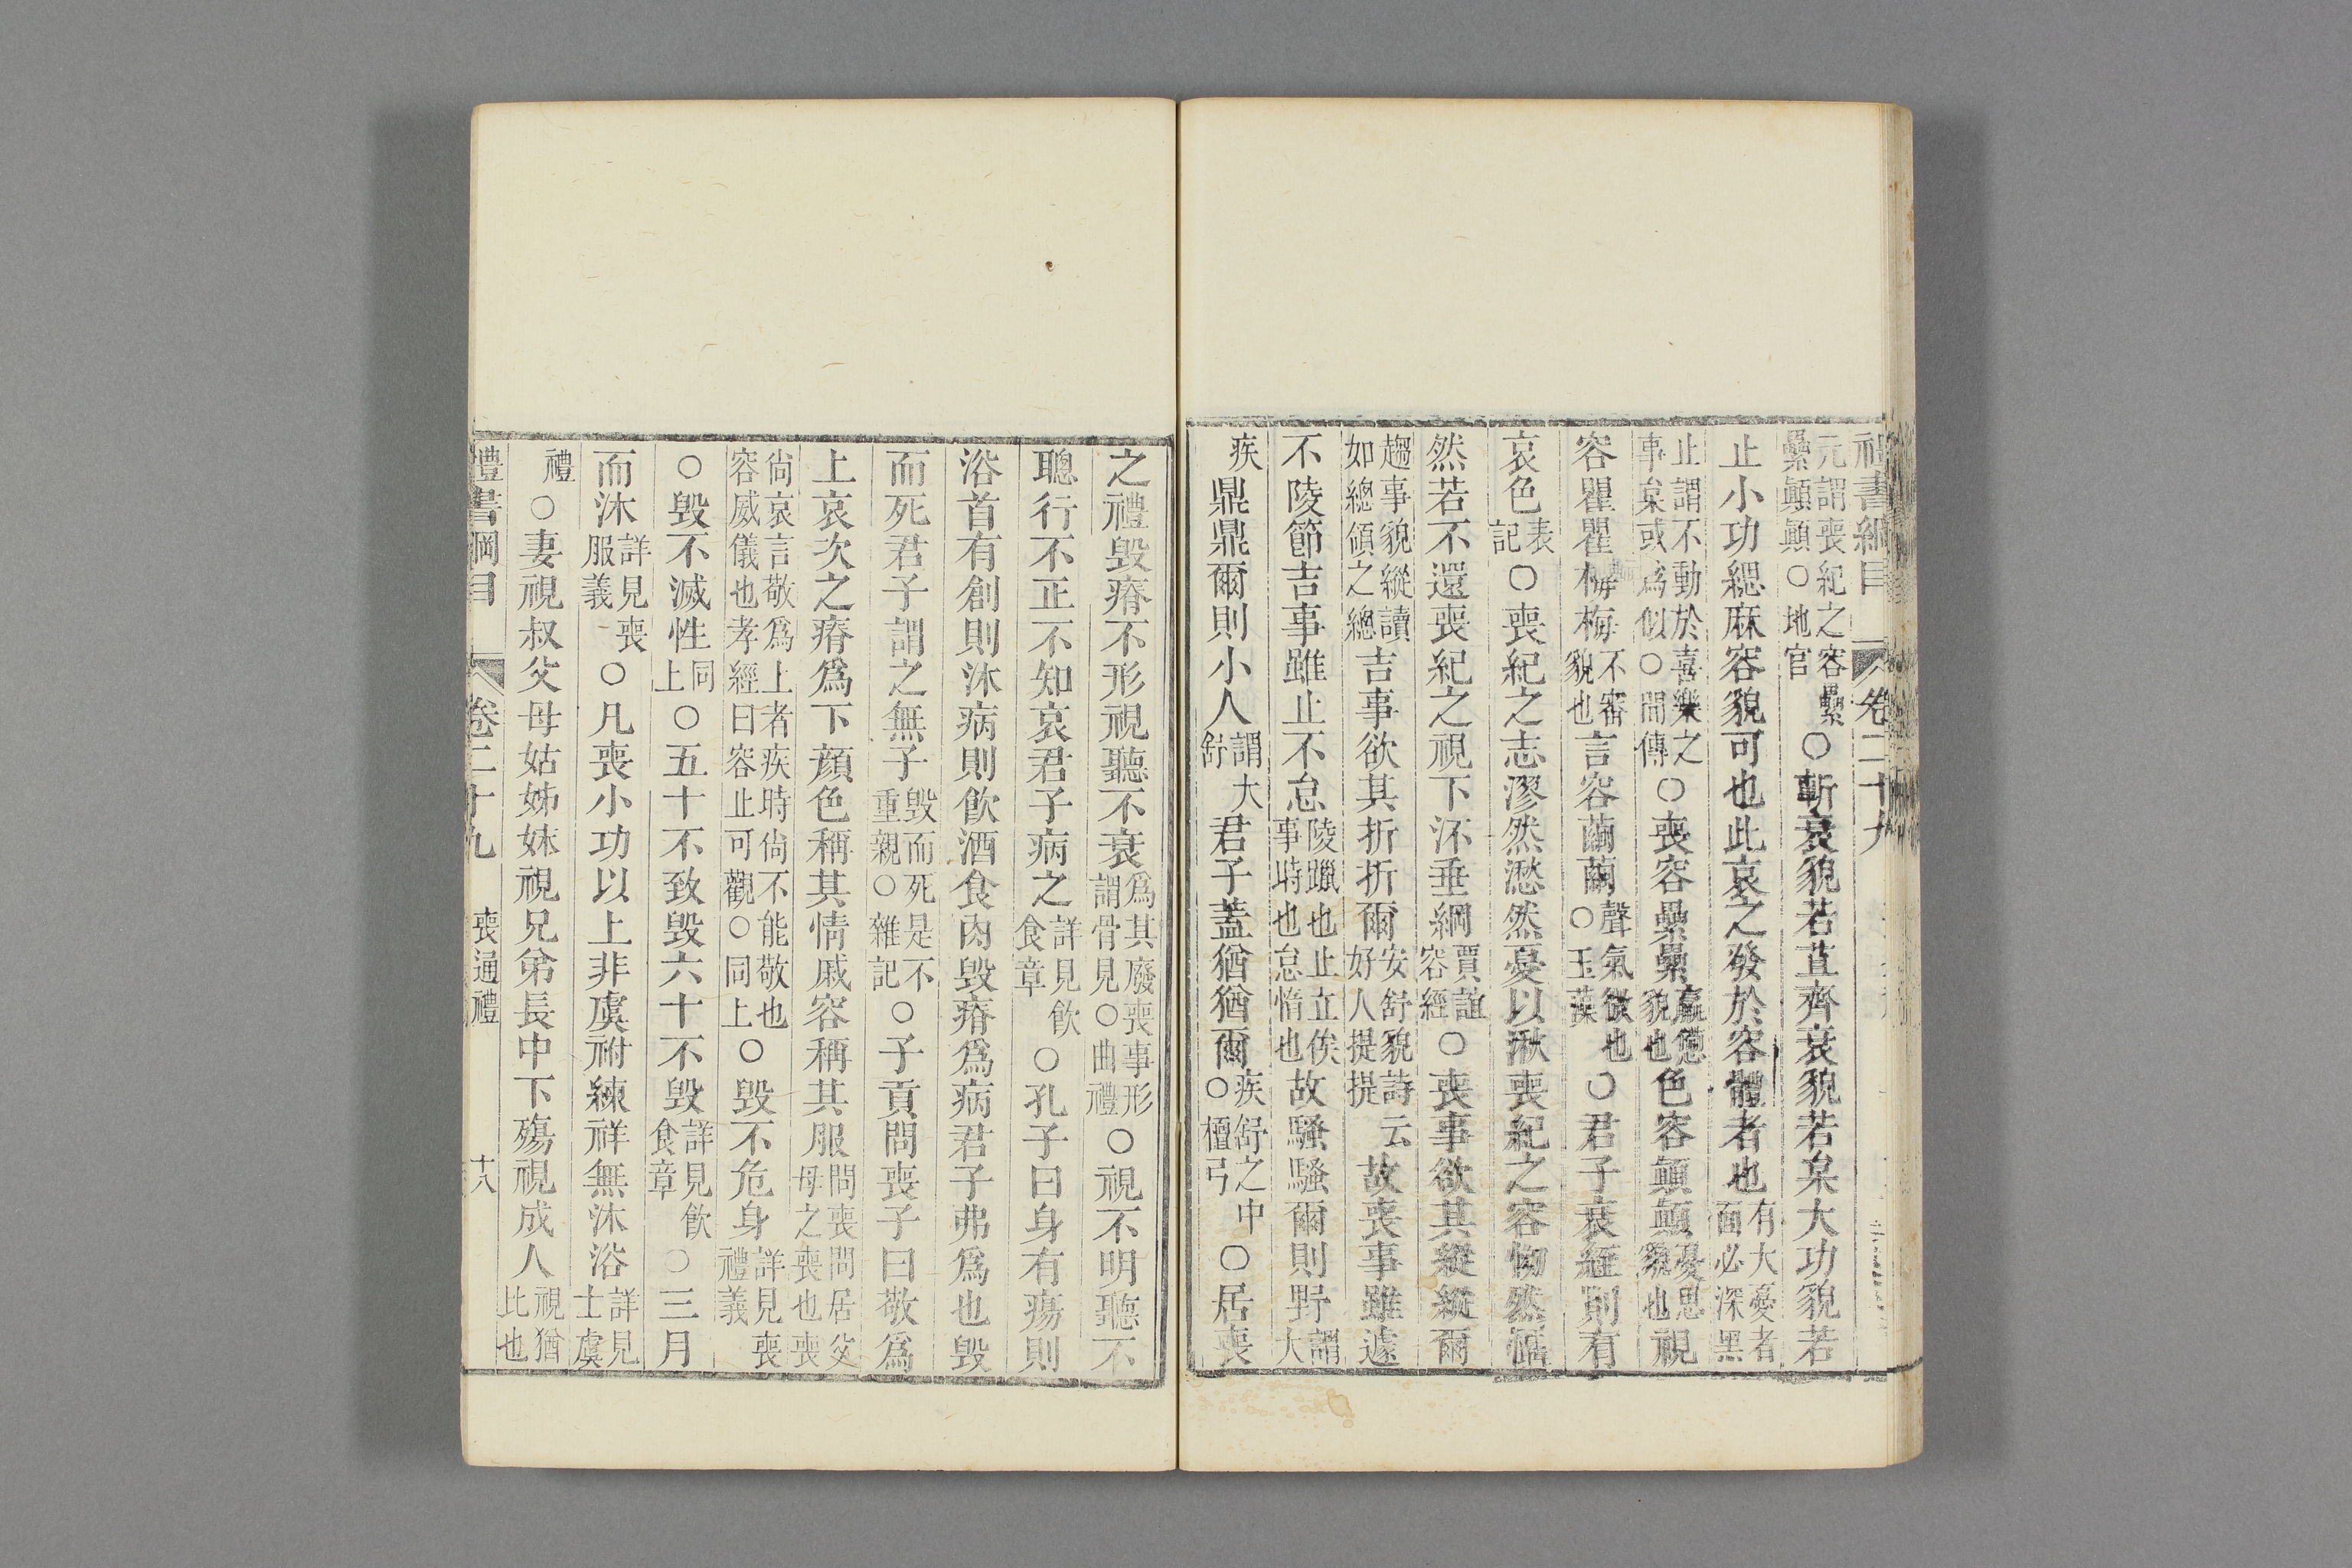 禮書綱目 卷二十九
元謂喪紀之容纍纍顚顚○地官○斬衰貌若苴齊衰貌若枲大功貌若
止小功緦麻容貌可也此哀之發於容體者也有大憂者面必深黑
止謂不動於喜樂之事枲或爲似○間傳○喪容纍纍羸憊貌也色容顚顚憂思貌也視
容瞿瞿梅梅不審貌也言容繭繭聲氣微也○玉藻○君子衰絰則有
哀色表記○喪紀之志漻然愁然憂以湫喪紀之容怮然慴
然若不還喪紀之視下沶垂綱賈誼容經○喪事欲其縱縱爾
趨事貌縱讀如總領之總吉事欲其折折爾安舒貌詩云好人提提故喪事雖遽
不陵節吉事雖止不怠陵躐也止立俟事時也怠惰也故騷騷爾則野謂大
疾鼎鼎爾則小人謂大舒君子蓋猶猶爾疾舒之中○檀弓○居喪
之禮毀瘠不形視聽不衰爲其廢喪事形謂骨見○曲禮○視不明聽不
聰行不正不知哀君子病之詳見飮食章○孔子曰身有瘍則
浴首有創則沐病則飮酒食肉毀瘠爲病君子弗爲也毀
而死君子謂之無子毀而死是不重親○雜記○子貢問喪子曰敬爲
上哀次之瘠爲下顏色稱其情戚容稱其服問喪問居父母之喪也喪
尙哀言敬爲上者疾時尙不能敬也容威儀也孝經曰容止可觀○同上○毀不危身詳見喪禮義
○毀不滅性同上○五十不致毀六十不毀詳見飮食章○三月
而沐詳見喪服義○凡喪小功以上非虞祔練祥無沐浴詳見士虞
禮○妻視叔父母姑姊妹視兄弟長中下殤視成人視猶比也
禮書綱目 卷二十九 喪通禮 十八